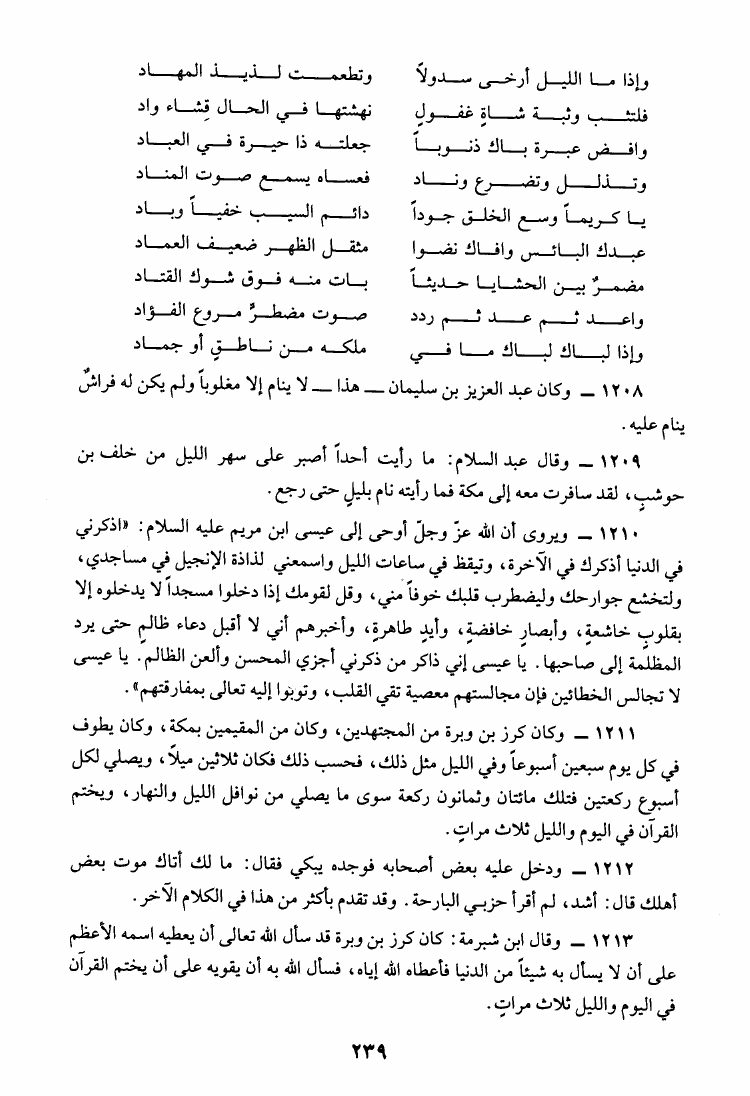 وإذا ما الليل أرخى سدولاً وتطعمت لذيذ المهاد
فلتثب وثبة شاةٍ غفولٍ نهشتها في الحال قِشاء واد
وافض عبرة باك ذنوباً جعلته ذا حيرة في العباد
وتذلل وتضرع وناد فعساه يسمع صوت المناد
يا كريماً وسع الخلق جوداً دائم السيب خفياً وباد
عبدك البائس وافاك نضوا مثقل الظهر ضعيف العماد
مضمرٌ بين الحشايا حديثاً بات منه فوق شوك القتاد
واعد ثم عد ثم ردد صوت مضطرٌ مروع الفؤاد
وإذا لباك لباك ما في ملكه من ناطقٍ أو جماد
١٢٠٨ ــ وكان عبد العزيز بن سليمان ــ هذا ــ لا ينام إلا مغلوباً ولم يكن له فراشٌ
ينام عليه.
١٢٠٩ ــ وقال عبد السلام: ما رأيت أحداً أصبر على سهر الليل من خلف بن
حوشبٍ، لقد سافرت معه إلى مكة فما رأيته نام بليلٍ حتى رجع.
١٢١٠ ــ ويروى أن الله عزّ وجلّ أوحى إلى عيسى ابن مريم عليه السلام: «اذكرني
في الدنيا أذكرك في الآخرة، وتيقظ في ساعات الليل واسمعني لذاذة الإنجيل في مساجدي،
ولتخشع جوارحك وليضطرب قلبك خوفاً مني، وقل لقومك إذا دخلوا مسجداً لا يدخلوه إلا
بقلوبٍ خاشعةٍ، وأبصارٍ خافضةٍ، وأيدٍ طاهرةٍ، وأخبرهم أني لا أقبل دعاء ظالمٍ حتى يرد
المظلمة إلى صاحبها. يا عيسى إني ذاكر من ذكرني أجزي المحسن وألعن الظالم. يا عيسى
لا تجالس الخطائين فإن مجالستهم معصية تقي القلب، وتوبوا إليه تعالى بمفارقتهم».
١٢١١ ــ وكان كرز بن وبرة من المجتهدين، وكان من المقيمين بمكة، وكان يطوف
في كل يوم سبعين أسبوعاً وفي الليل مثل ذلك، فحسب ذلك فكان ثلاثين ميلاً، ويصلي لكل
أسبوع ركعتين فتلك مائتان وثمانون ركعة سوى ما يصلي من نوافل الليل والنهار، ويختم
القرآن في اليوم والليل ثلاث مراتٍ.
١٢١٢ ــ ودخل عليه بعض أصحابه فوجده يبكي فقال: ما لك أتاك موت بعض
أهلك قال: أشد، لم أقرأ حزبي البارحة. وقد تقدم بأكثر من هذا في الكلام الآخر.
١٢١٣ ــ وقال ابن شبرمة: كان كرز بن وبرة قد سأل الله تعالى أن يعطيه اسمه الأعظم
على أن لا يسأل به شيئاً من الدنيا فأعطاه الله إياه، فسأل الله به أن يقويه على أن يختم القرآن
في اليوم والليل ثلاث مراتٍ.
٢٣٩